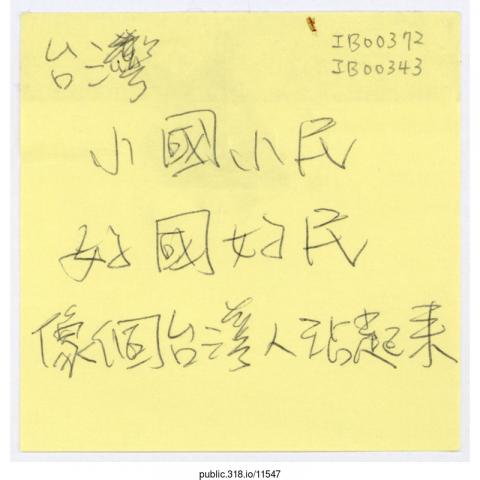 IB00372
IB00343
台灣
小國小民
好國好民
像個台灣人站起來
public.318.io/11547